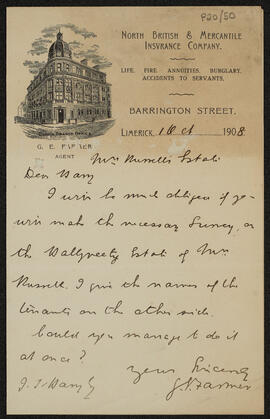 P20/50
NORTH BRITISH & MERCANTILE
INSURANCE COMPANY.
LIFE. FIRE. ANNUITIES. BURGLARY.
ACCIDENTS TO SERVANTS.
BARRINGTON STREET,
LIMERICK, 1 Oct 1908
G. E. FARMER
AGENT
Mrs Russell's Estate
Dear Barry
I will be much obliged if you
will make the necessary Survey, on
the Ballyneety Estate of Mrs
Russell. I give the names of the
tenants on the other side.
Could you manage to do it
at once?
Yours Sincerely
G E Farmer